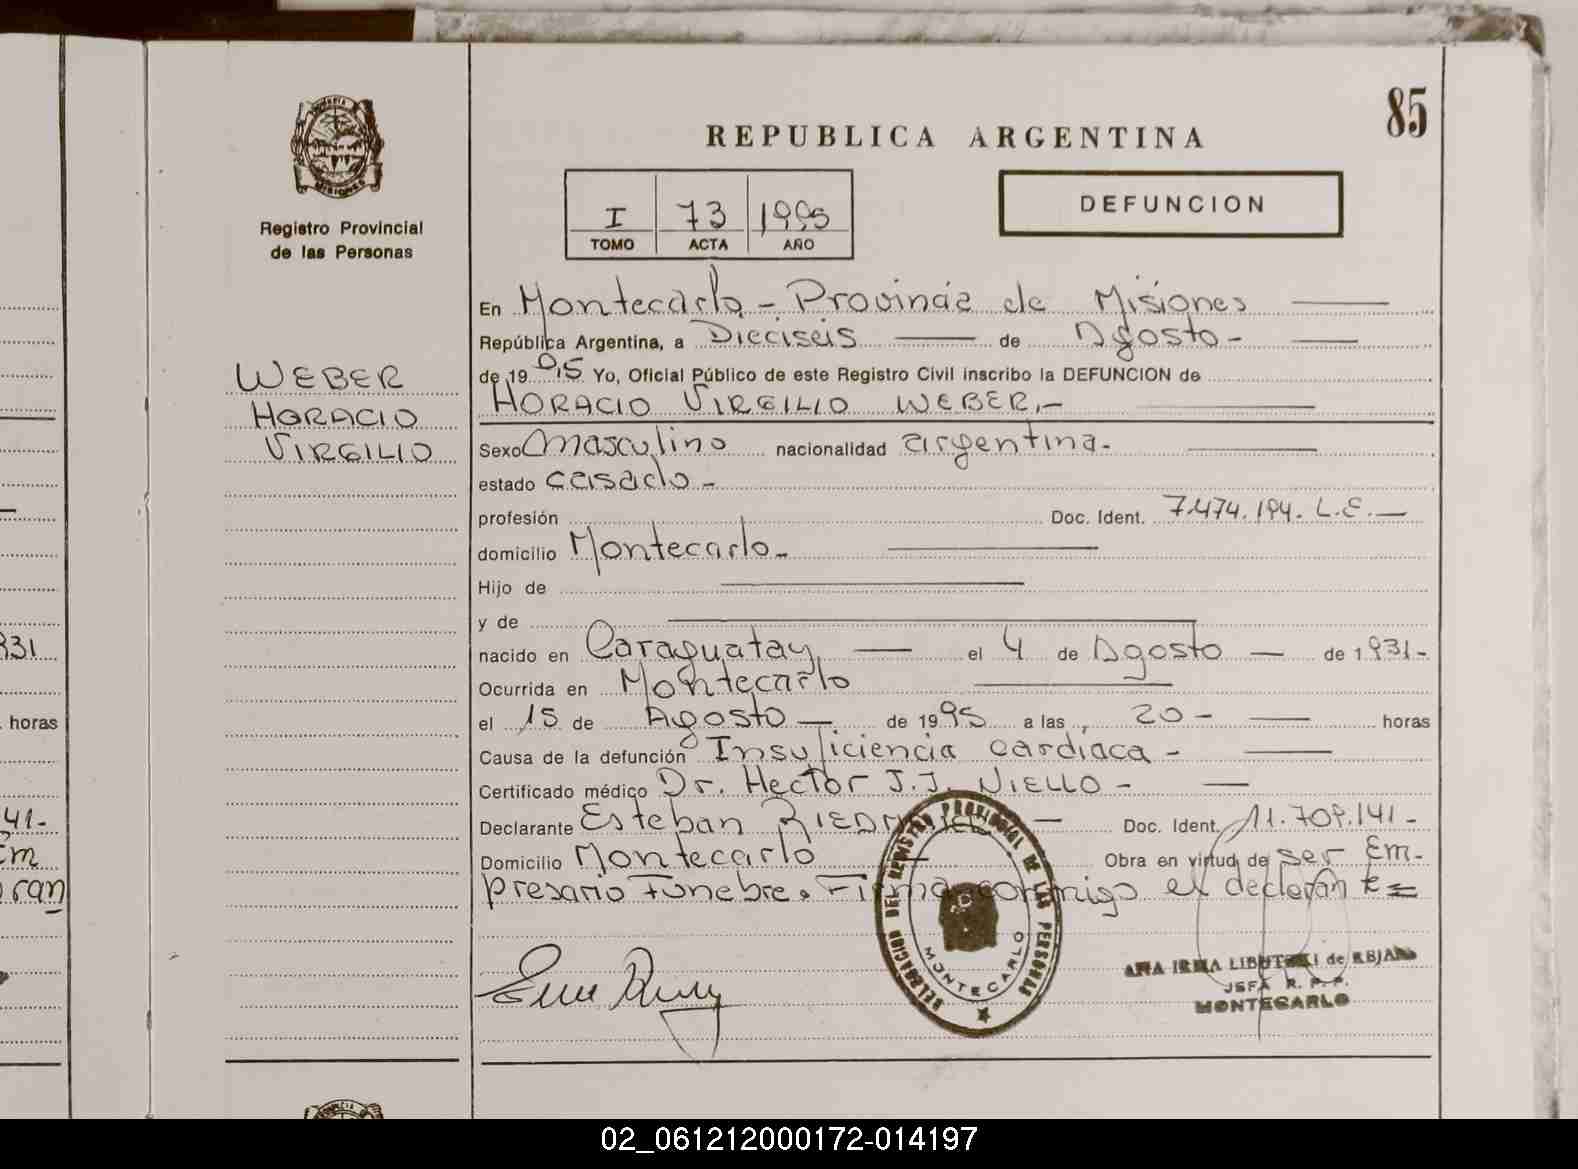 85
REPUBLICA ARGENTINA
PROVINCIA
MISIONES
Registro Provincial
de las Personas
I 73 1995
TOMO ACTA AÑO
DEFUNCION
En Montecarlo - Provincia de Misiones
República Argentina, a Dieciseis de Agosto -
de 19 95 Yo, Oficial Público de este Registro Civil inscribo la DEFUNCION de
HORACIO VIRGILIO WEBER.-
WEBER
HORACIO
VIRGILIO
Sexo masculino nacionalidad argentina.
estado casado -
profesión Doc. Ident. 7.474.194. L.E.
domicilio Montecarlo -
Hijo de
y de
nacido en Caraguatay el 4 de Agosto de 1931-
Ocurrida en Montecarlo
el 15 de Agosto de 1995 a las 20 - horas
Causa de la defunción Insuficiencia cardiaca -
Certificado médico Dr. Hector J.J. NIELLO -
Declarante Esteban Doc. Ident. 11.709.141 -
Domicilio Montecarlo Obra en virtud de ser Em-
presario Funebre. Firma conmigo el declarante =
DELEGACION DEL REGISTRO PROVINCIAL DE LAS PERSONAS
MONTECARLO
ANA IRMA de
JEFA R. P. P.
MONTECARLO
931
horas
41-
Em
ran
02_061212000172-014197